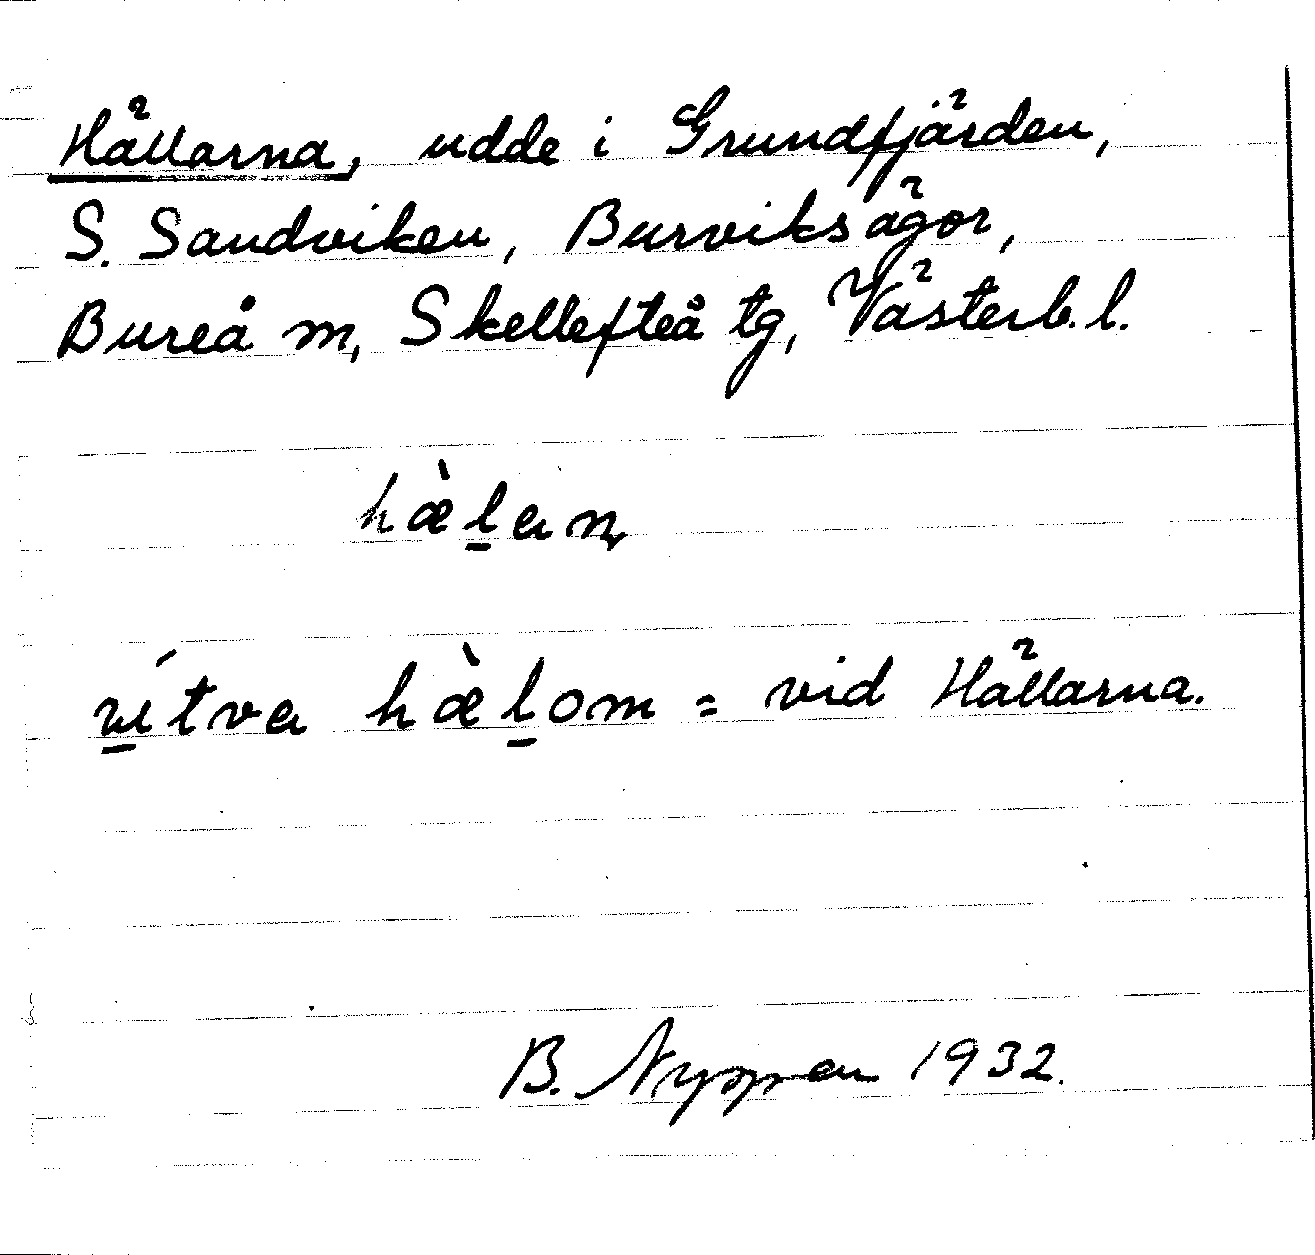 Hällarna, udde i Grundfjärden,
S. Sandviken, Burviks ägor,
Bureå sn, Skellefteå tg, Västerb. l.
hæ̀l̠an
vítva hæ̀l̠om = vid Hällarna.
B. 1932.